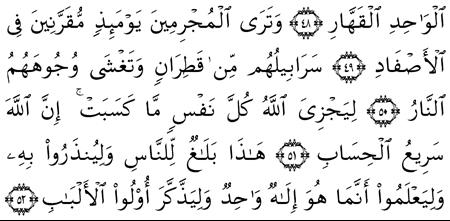 ٱلْوَٰحِدِ ٱلْقَهَّارِ ﴿٤٨﴾ وَتَرَى ٱلْمُجْرِمِينَ يَوْمَئِذٍ مُّقَرَّنِينَ فِى
ٱلْأَصْفَادِ ﴿٤٩﴾ سَرَابِيلُهُم مِّن قَطِرَانٍ وَتَغْشَىٰ وُجُوهَهُمُ
ٱلنَّارُ ﴿٥٠﴾ لِيَجْزِىَ ٱللَّهُ كُلَّ نَفْسٍ مَّا كَسَبَتْ ۚ إِنَّ ٱللَّهَ
سَرِيعُ ٱلْحِسَابِ ﴿٥١﴾ هَٰذَا بَلَٰغٌ لِّلنَّاسِ وَلِيُنذَرُوا۟ بِهِۦ
وَلِيَعْلَمُوٓا۟ أَنَّمَا هُوَ إِلَٰهٌ وَٰحِدٌ وَلِيَذَّكَّرَ أُو۟لُوا۟ ٱلْأَلْبَٰبِ ﴿٥٢﴾